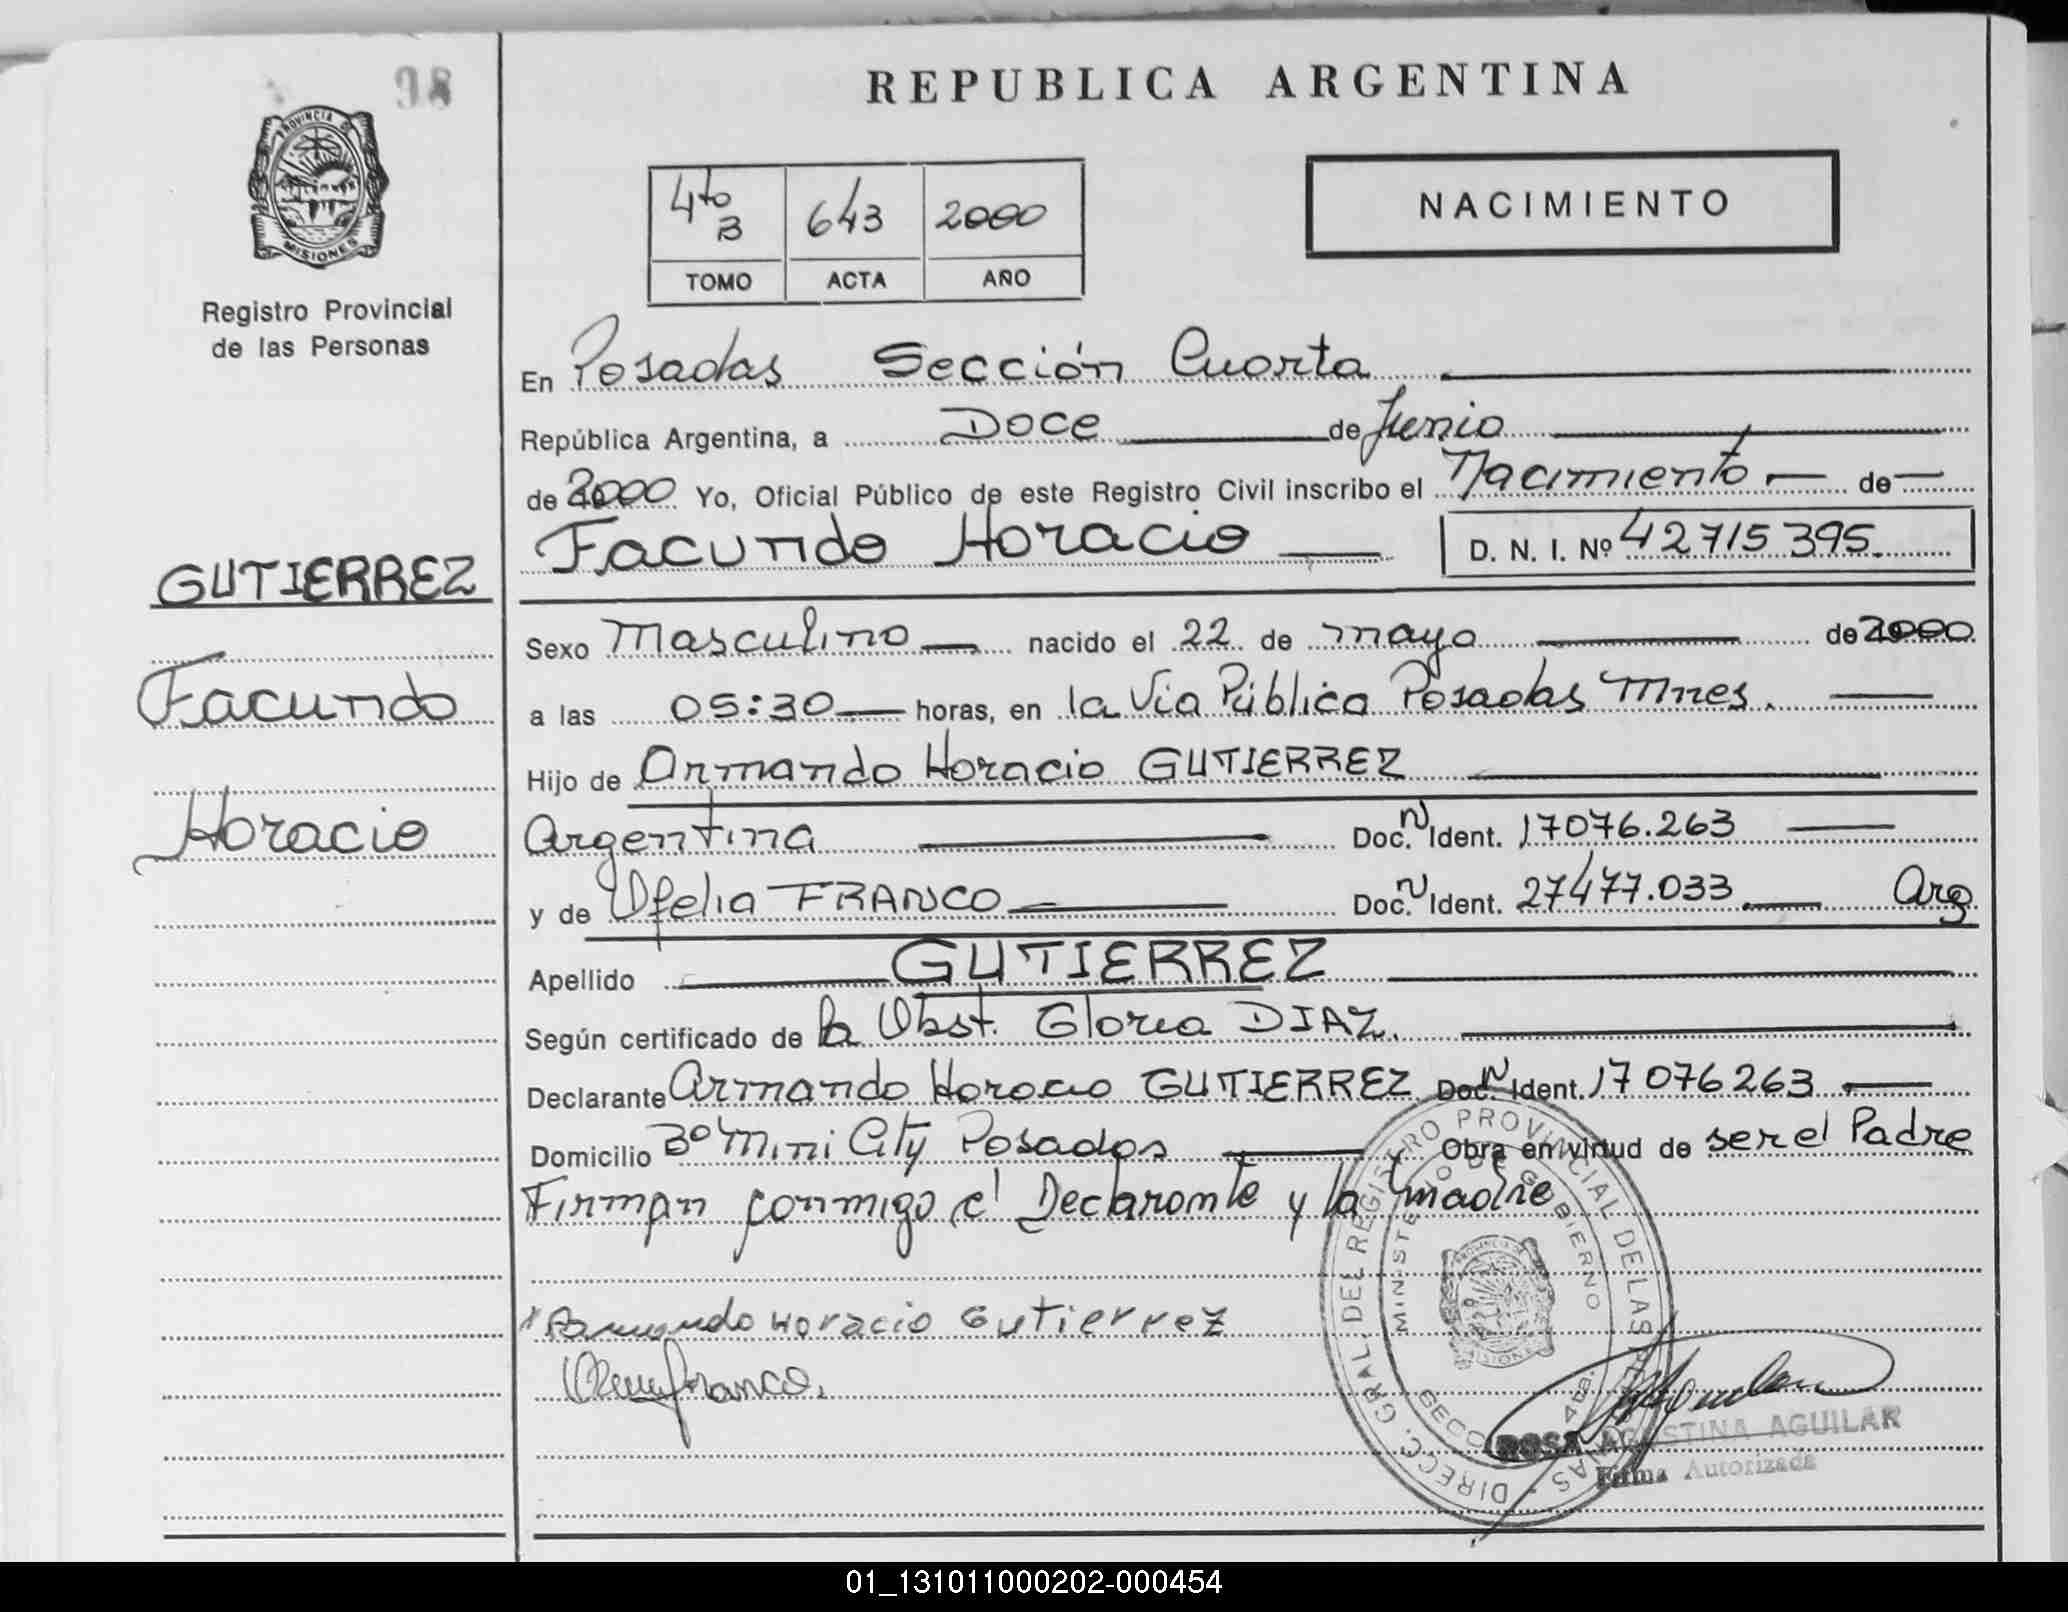 98
REPUBLICA ARGENTINA
PROVINCIA DE
MISIONES
Registro Provincial
de las Personas
4to B 643 2000
TOMO ACTA AÑO
NACIMIENTO
En Posadas Sección Cuarta
República Argentina, a Doce de Junio
de 2000 Yo, Oficial Público de este Registro Civil inscribo el Nacimiento de
Facundo Horacio D. N. I. Nº 42715395
GUTIERREZ
Facundo
Horacio
Sexo Masculino nacido el 22 de mayo de 2000
a las 05:30 horas, en la Via Pública Posadas Mnes.
Hijo de Armando Horacio GUTIERREZ
Argentina Doc. N Ident. 17076.263
y de Ofelia FRANCO Doc. N Ident. 27477.033 Arg
Apellido GUTIERREZ
Según certificado de la Obst. Gloria DIAZ.
Declarante Armando Horacio GUTIERREZ Doc. N Ident. 17076263
Domicilio Bº Mini City Posadas Obra en virtud de ser el Padre
Firman conmigo el Declarante y la madre
Horacio Gutierrez
franco.
DIRECC. GRAL. DEL REGISTRO PROVINCIAL DE LAS
MINISTERIO DE GOBIERNO
ROSA AGUSTINA AGUILAR
Firma Autorizada
01_131011000202-000454